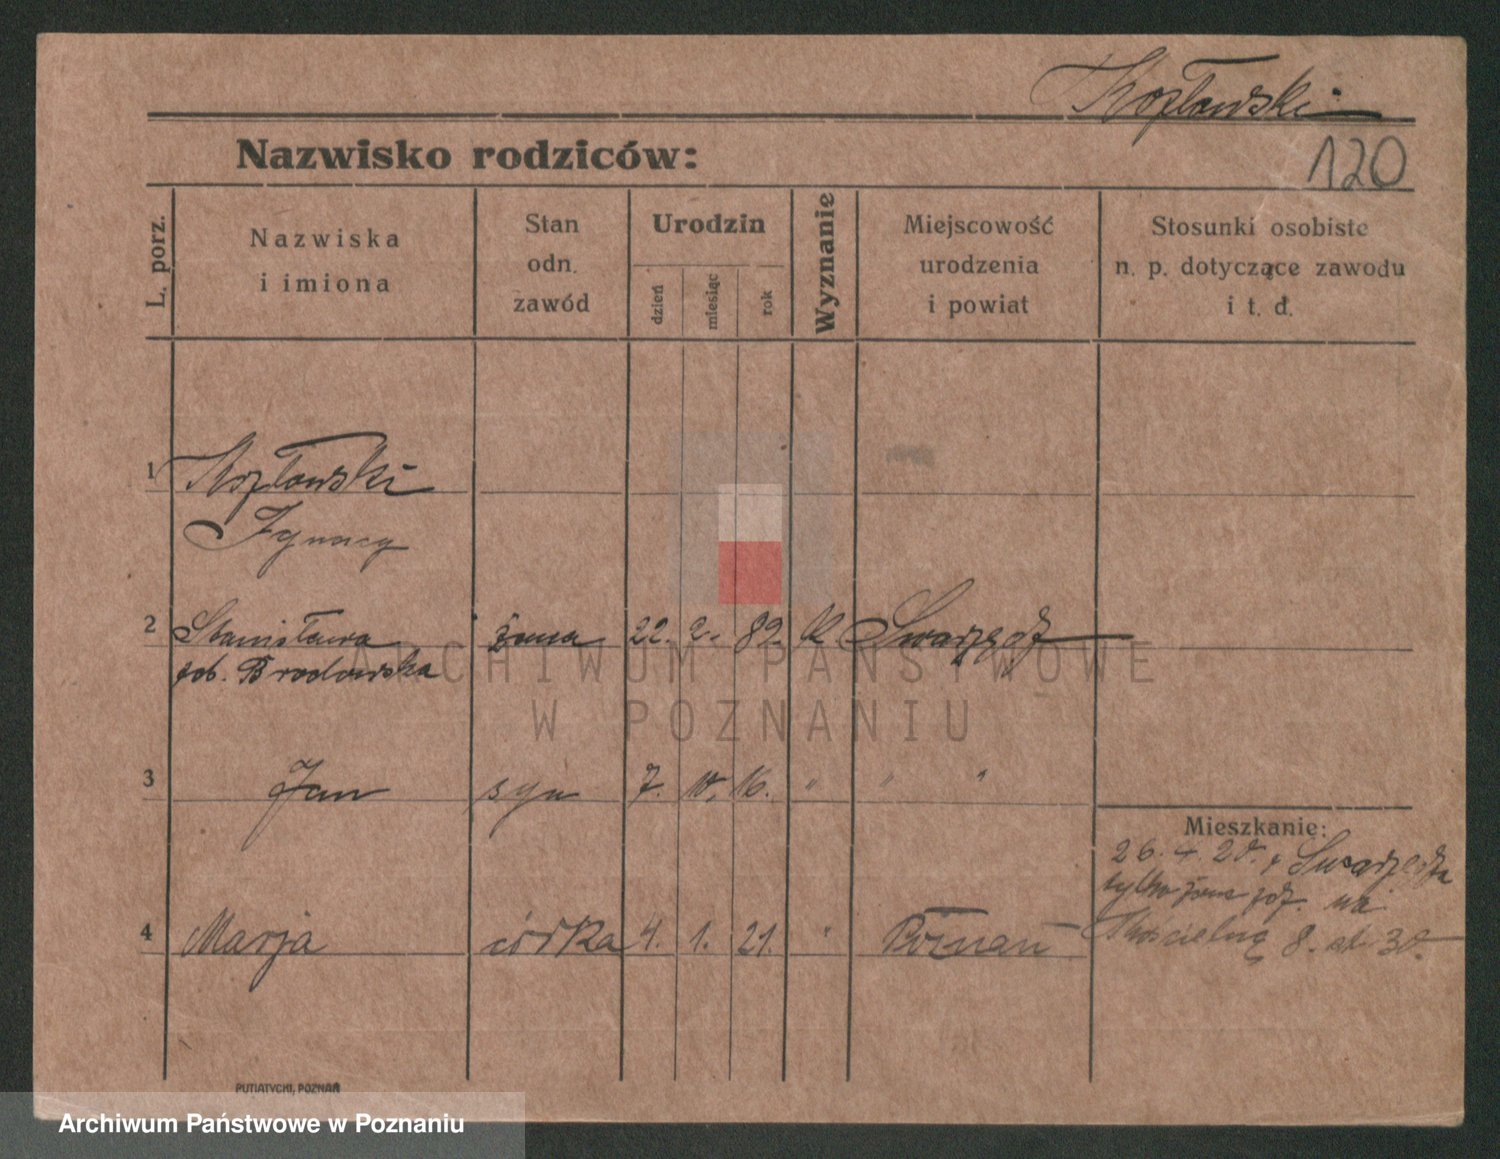 Kozłowski
Nazwisko rodziców:
120
L. porz.
Nazwiska
i imiona
Stan
odn.
zawód
Urodzin
dzień
miesiąc
rok
Wyznanie
Miejscowość
urodzenia
i powiat
Stosunki osobiste
n. p. dotyczące zawodu
i t. d.
1 Kozłowski
Ignacy
2 Stanisława żona 22. 2. 89. K Swarzędz
ARCHIWUM PAŃSTWOWE
W POZNANIU
Brodowska
3 Jan syn 7. 10. 16. " " "
Mieszkanie:
26. 4. 20. z Swarzędza
tylko żona
4 Marja córka 4. 1. 21. " Poznań
8. 30.
PUTIATYCKI, POZNAŃ
Archiwum Państwowe w Poznaniu